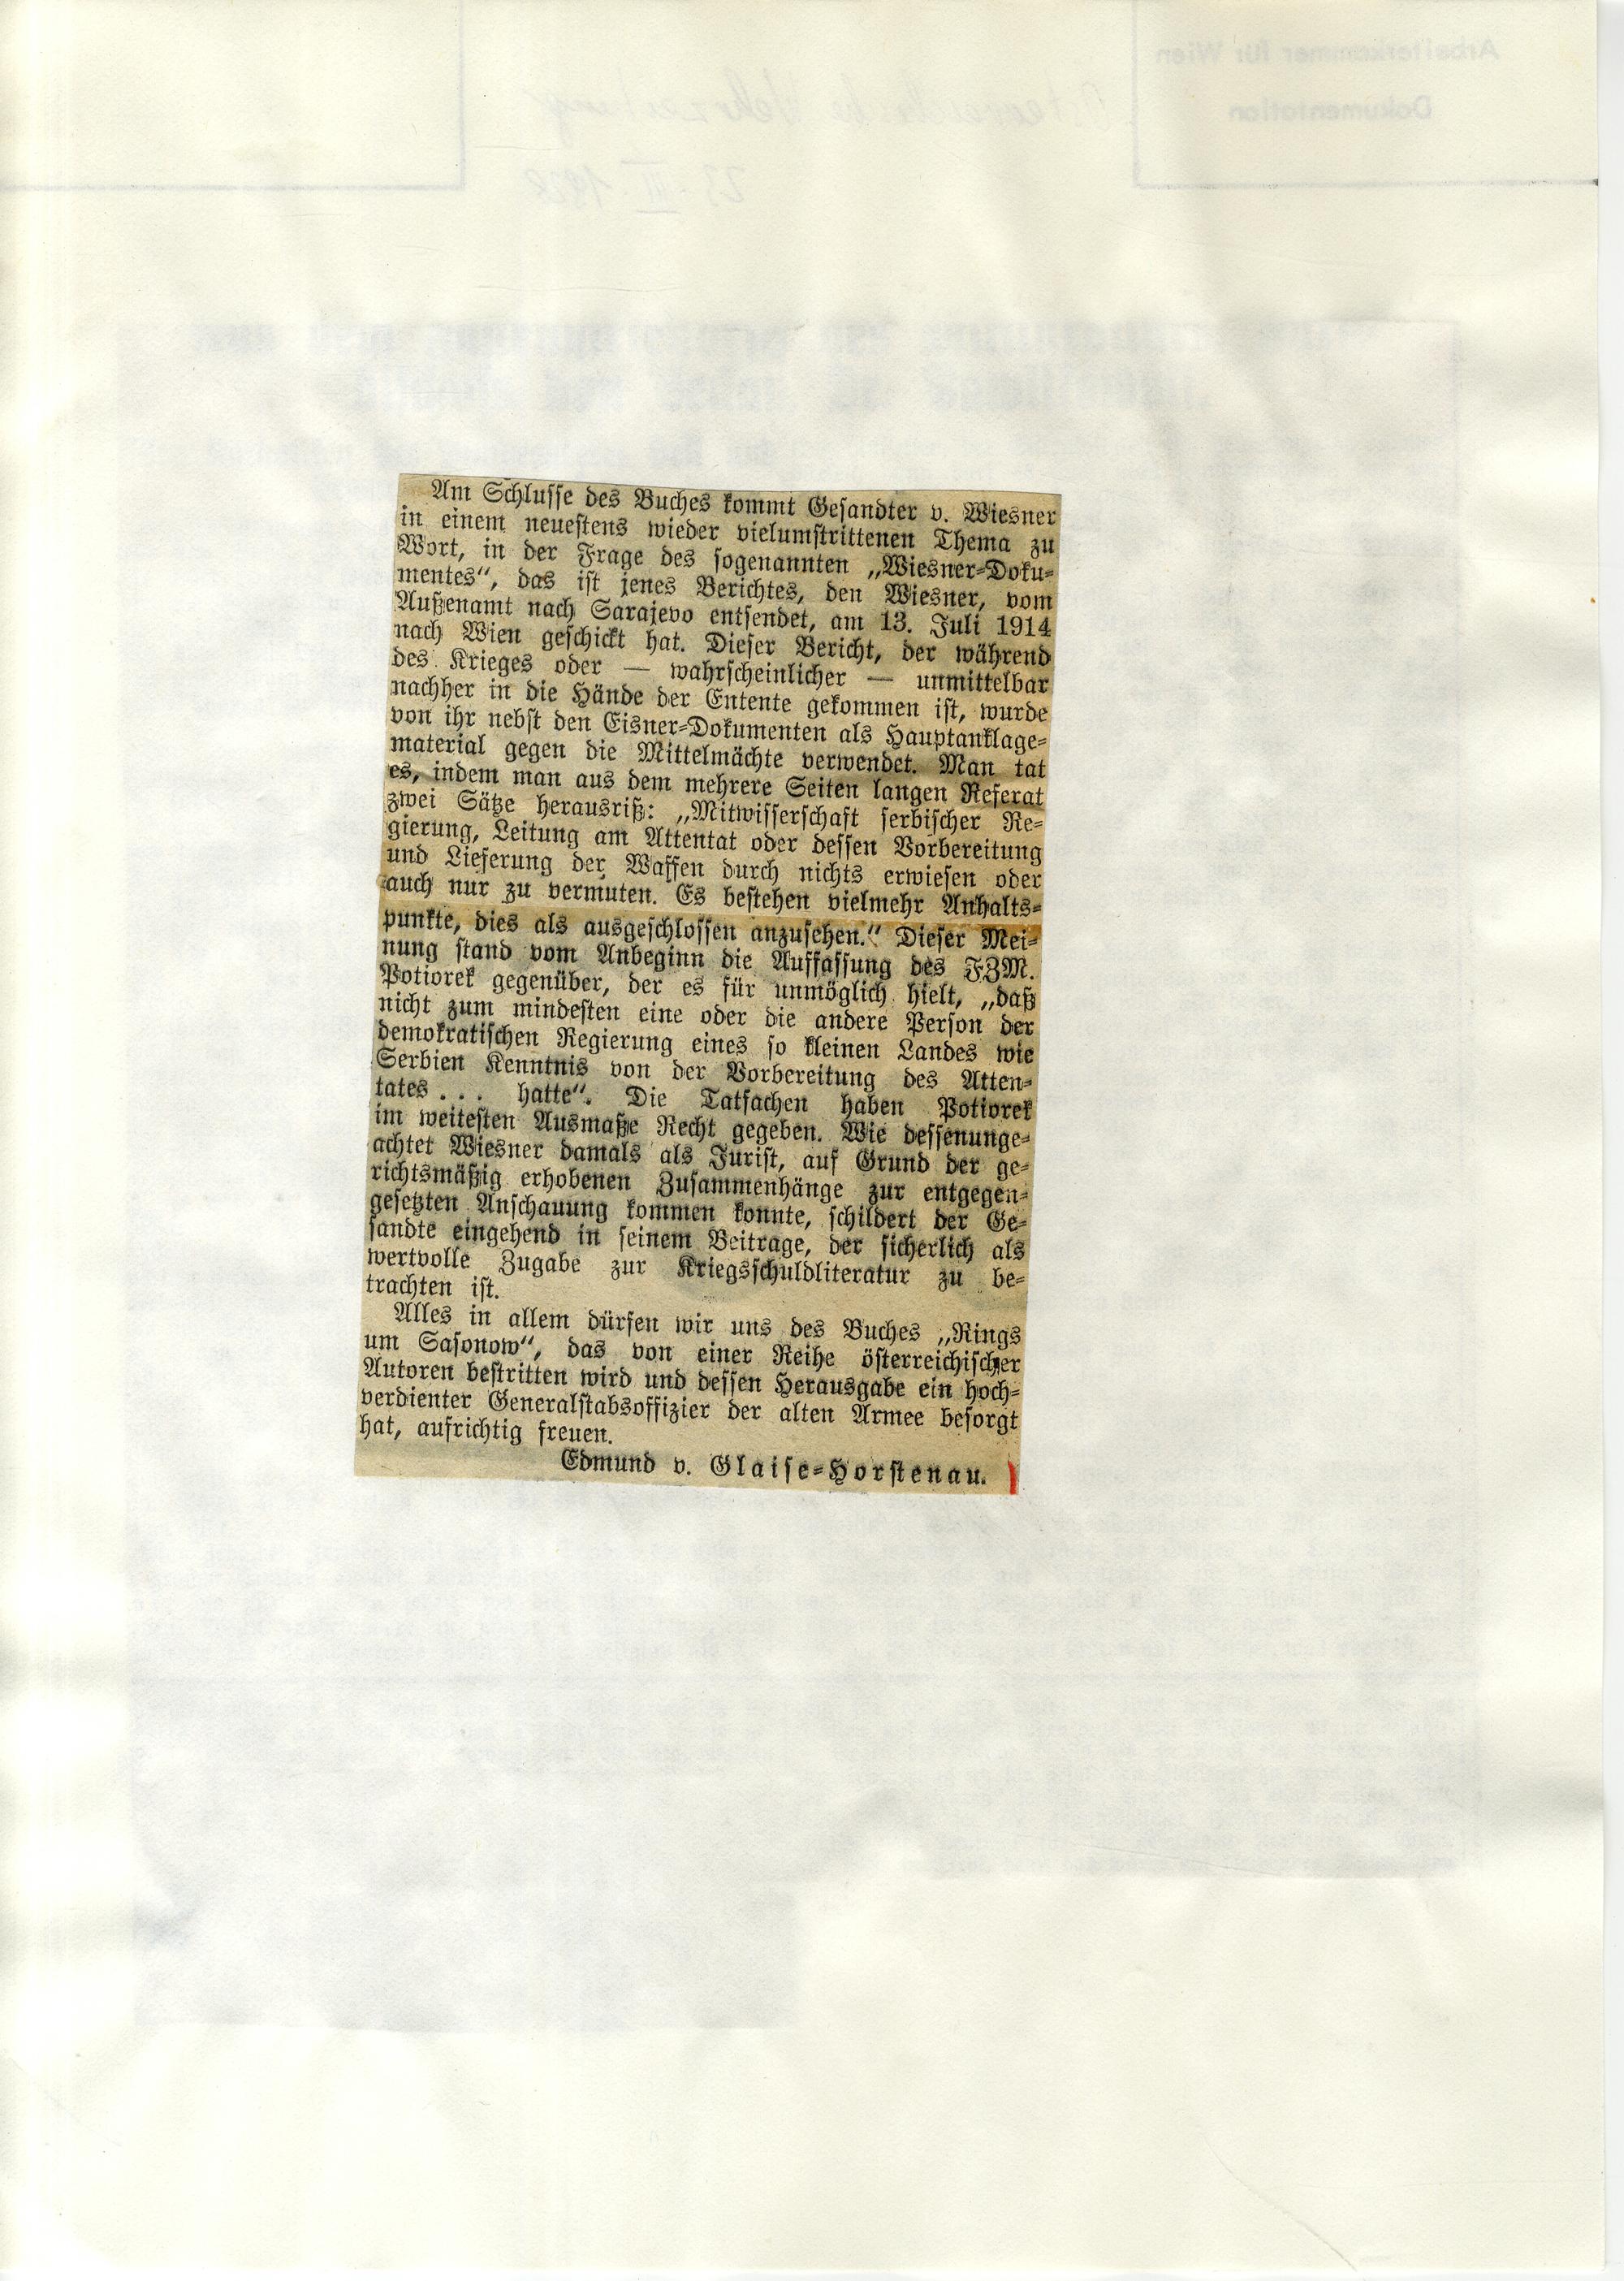 Am Schlusse des Buches kommt Gesandter v. Wiesner
in einem neuestens wieder vielumstrittenen Thema zu
Wort, in der Frage des sogenannten „Wiesner-Doku-
mentes“, das ist jenes Berichtes, den Wiesner, vom
Außenamt nach Sarajevo entsendet, am 13. Juli 1914
nach Wien geschickt hat. Dieser Bericht, der während
des Krieges oder — wahrscheinlicher — unmittelbar
nachher in die Hände der Entente gekommen ist, wurde
von ihr nebst den Eisner-Dokumenten als Hauptanklage-
material gegen die Mittelmächte verwendet. Man tat
es, indem man aus dem mehrere Seiten langen Referat
zwei Sätze herausriß: „Mitwisserschaft serbischer Re-
gierung, Leitung am Attentat oder dessen Vorbereitung
und Lieferung der Waffen durch nichts erwiesen oder
auch nur zu vermuten. Es bestehen vielmehr Anhalts-
punkte, dies als ausgeschlossen anzusehen.“ Dieser Mei-
nung stand vom Anbeginn die Auffassung des FZM.
Potiorek gegenüber, der es für unmöglich hielt, „daß
nicht zum mindesten eine oder die andere Person der
demokratischen Regierung eines so kleinen Landes wie
Serbien Kenntnis von der Vorbereitung des Atten-
tates . . . hatte“. Die Tatsachen haben Potiorek
im weitesten Ausmaße Recht gegeben. Wie dessenunge-
achtet Wiesner damals als Jurist, auf Grund der ge-
richtsmäßig erhobenen Zusammenhänge zur entgegen-
gesetzten Anschauung kommen konnte, schildert der Ge-
sandte eingehend in seinem Beitrage, der sicherlich als
wertvolle Zugabe zur Kriegsschuldliteratur zu be-
trachten ist.
Alles in allem dürfen wir uns des Buches „Rings
um Sasonow“, das von einer Reihe österreichischer
Autoren bestritten wird und dessen Herausgabe ein hoch-
verdienter Generalstabsoffizier der alten Armee besorgt
hat, aufrichtig freuen.
Edmund v. Glaise-Horstenau.